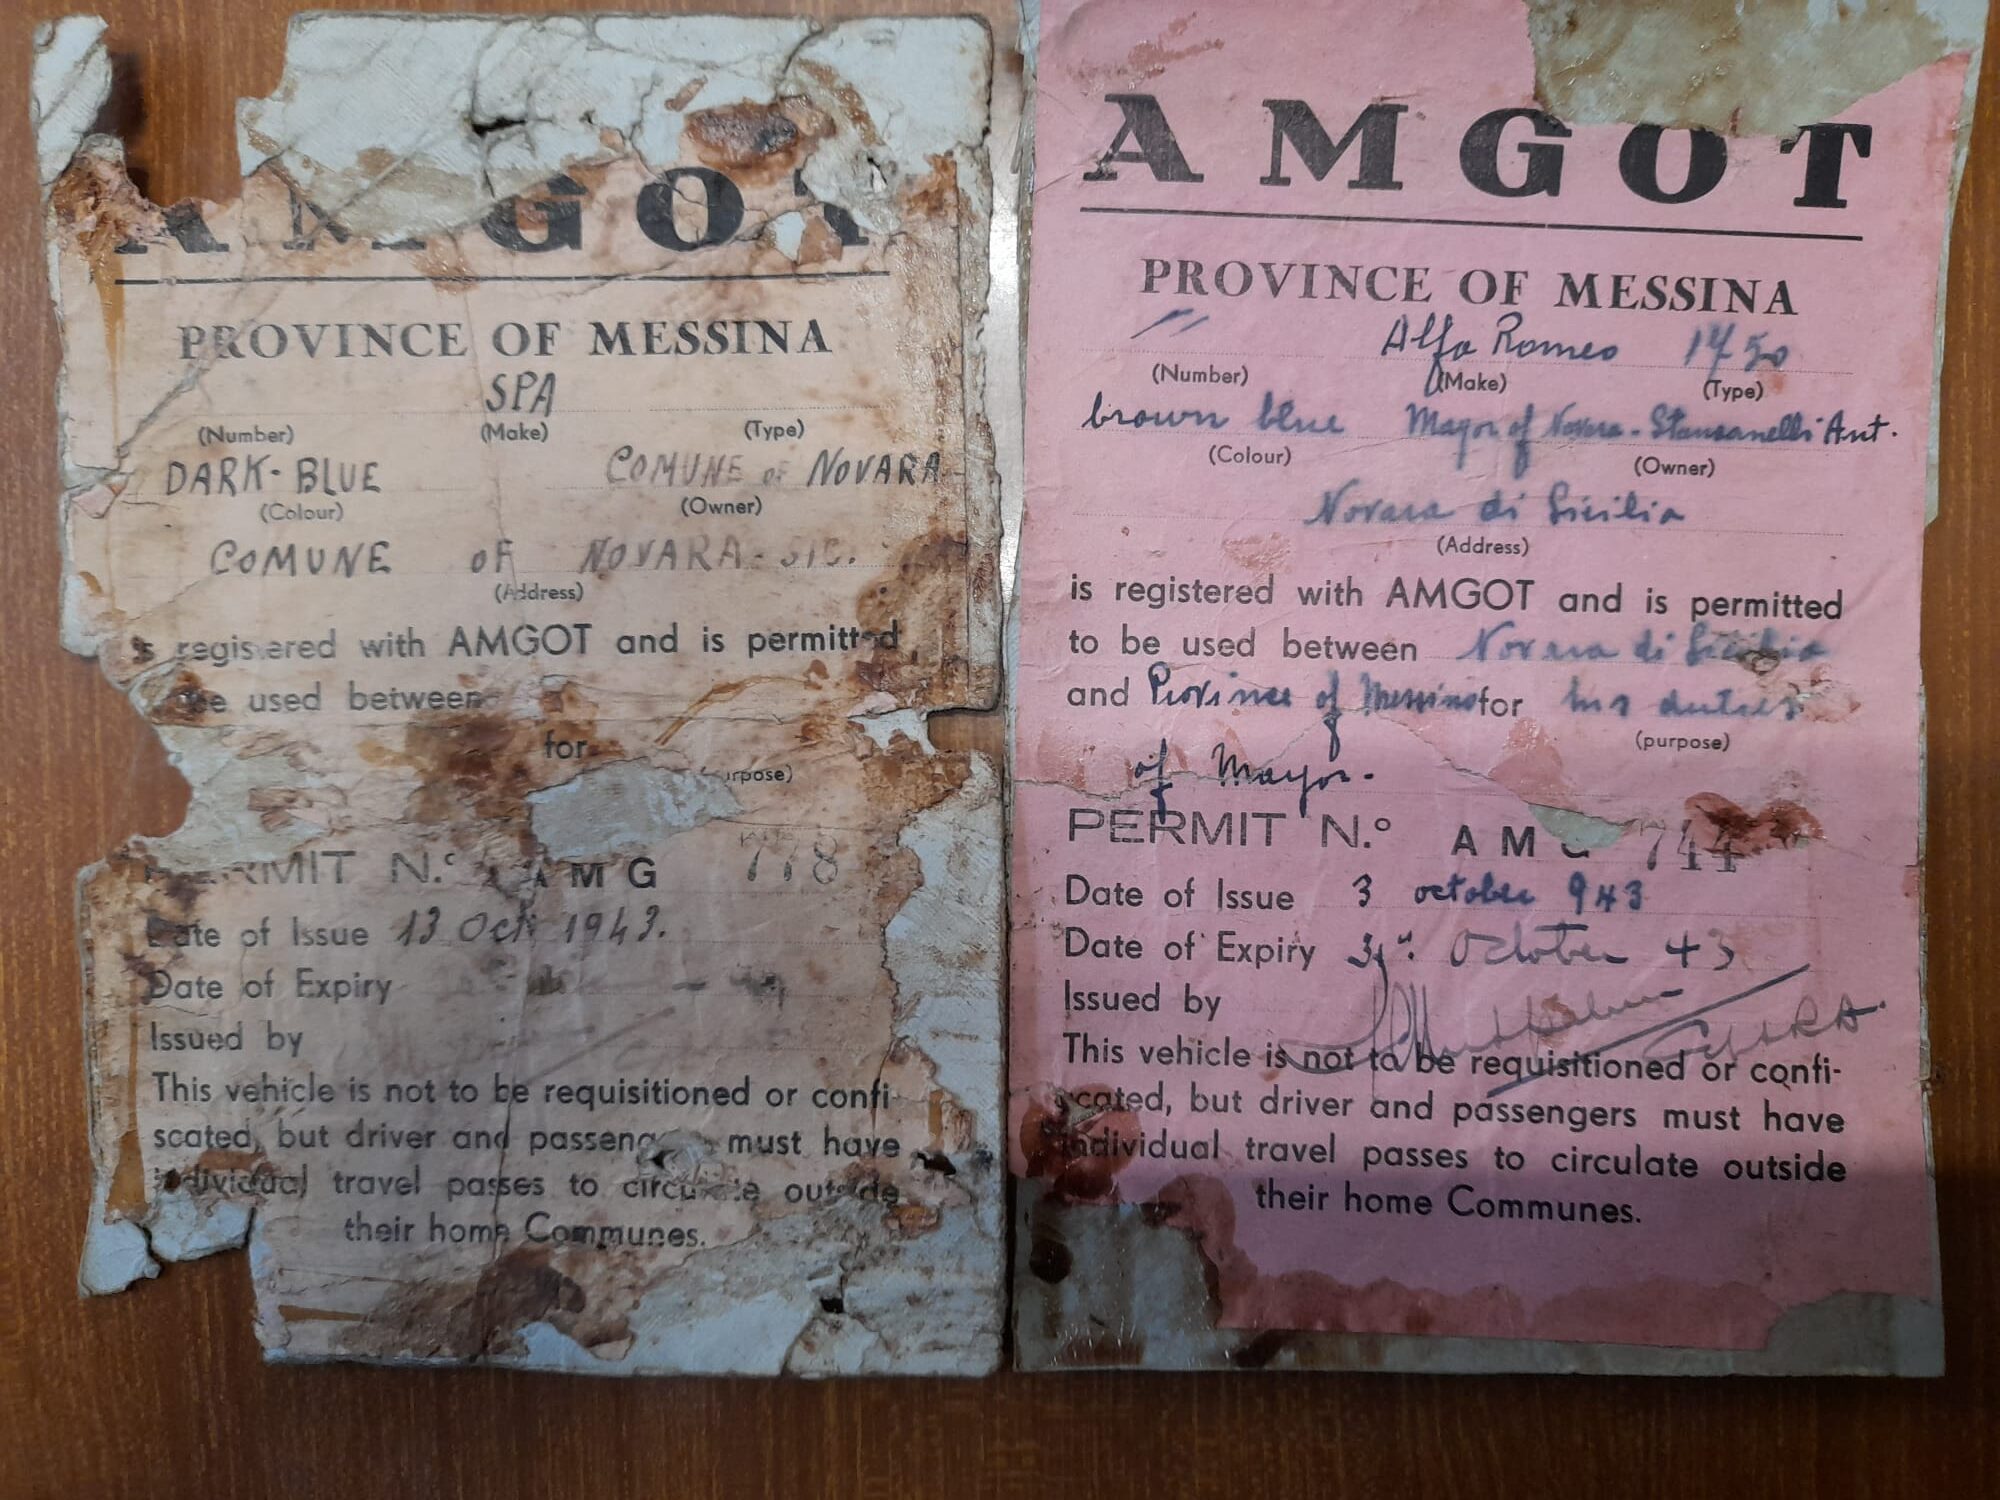 AMGOT
PROVINCE OF MESSINA
SPA
(Number) (Make) (Type)
DARK-BLUE COMUNE OF NOVARA
(Colour) (Owner)
COMUNE OF NOVARA-SIC.
(Address)
is registered with AMGOT and is permitted
be used between
for
(purpose)
PERMIT N.º AMG 778
Date of Issue 13 Oct 1943.
Date of Expiry
Issued by
This vehicle is not to be requisitioned or confi-
scated, but driver and passengers must have
individual travel passes to circulate outside
their home Communes.
AMGOT
PROVINCE OF MESSINA
" Alfa Romeo
(Number) (Make) (Type)
brown blue Mayor of Novara - Stansanelli Ant.
(Colour) (Owner)
Novara di Sicilia
(Address)
is registered with AMGOT and is permitted
to be used between Novara di Sicilia
and Province of Messina for his duties
(purpose)
of Mayor.
PERMIT N.º AMG 744
Date of Issue 3 october 943
Date of Expiry 31st. October 43
Issued by
This vehicle is not to be requisitioned or confi-
scated, but driver and passengers must have
individual travel passes to circulate outside
their home Communes.